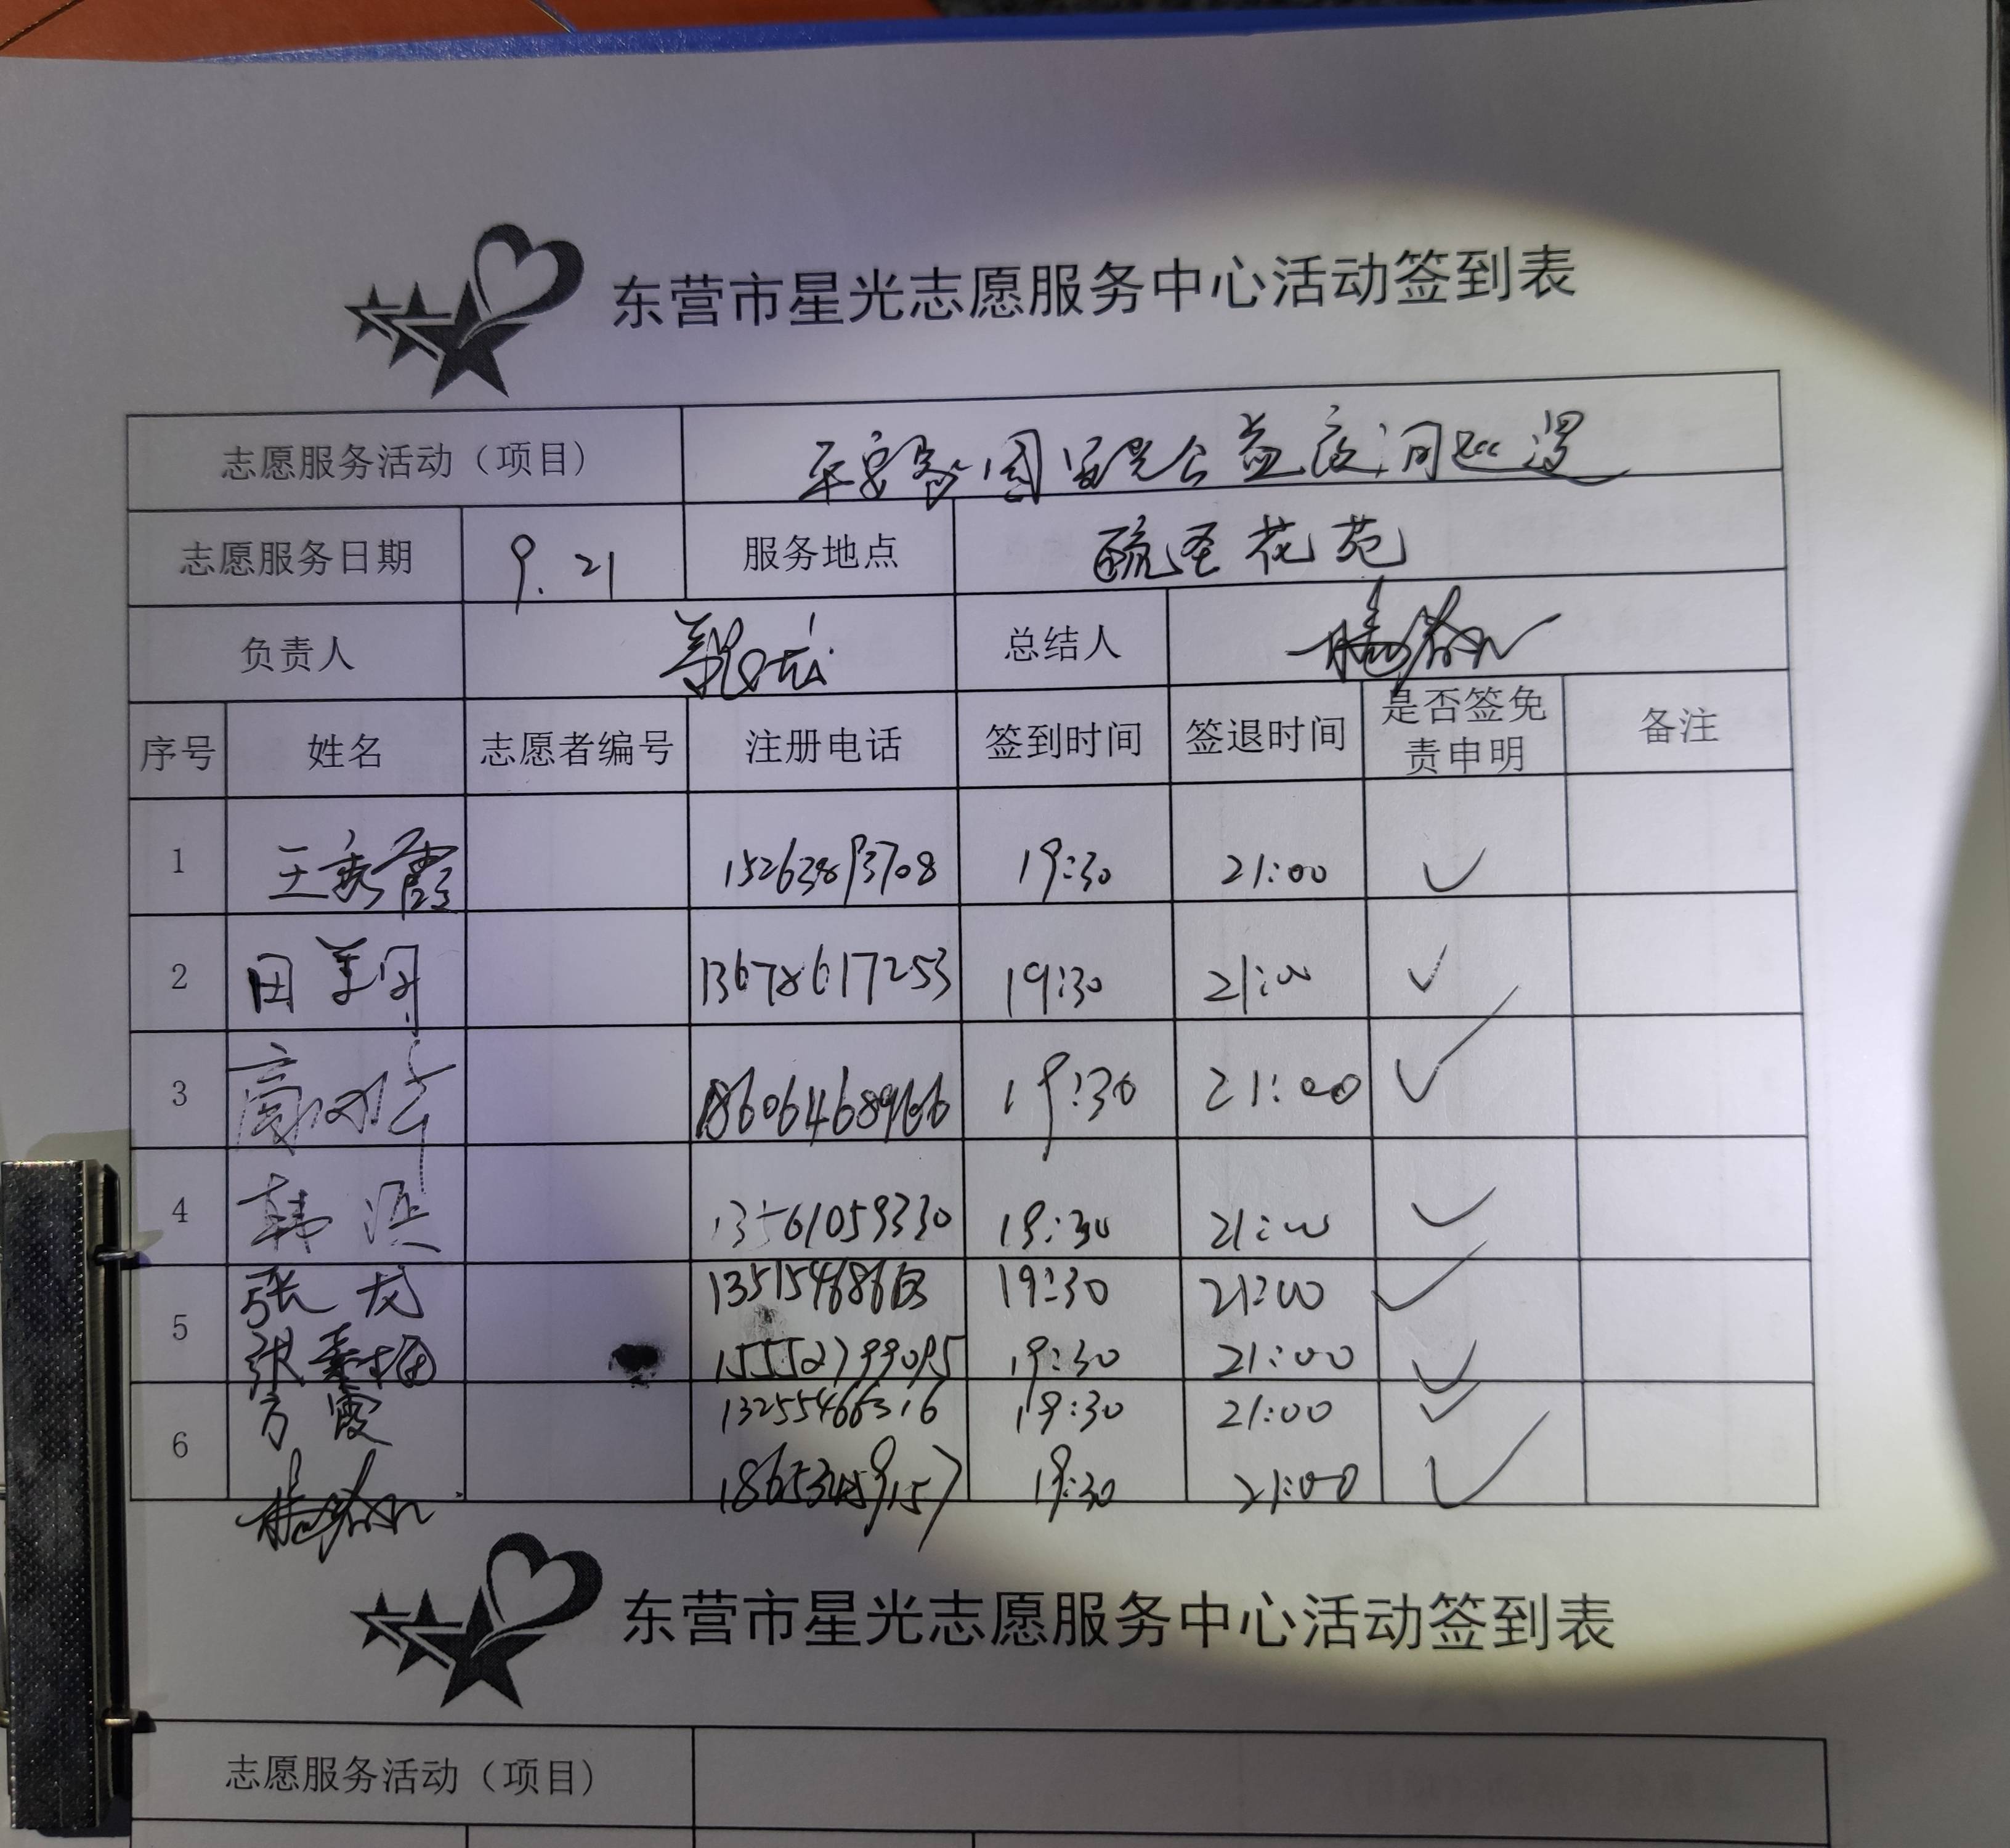 东营市星光志愿服务中心活动签到表
志愿服务活动（项目） 平安家园星光公益夜间巡逻
志愿服务日期 9.21 服务地点 花苑
负责人 总结人
序号 姓名 志愿者编号 注册电话 签到时间 签退时间 是否签免责申明 备注
1 王秀霞 15263893708 19:30 21:00 ✓
2 田 13678617253 19:30 21:00 ✓
3 高 18606468966 19:30 21:00 ✓
4 韩滨 13561059330 19:30 21:00 ✓
5 张龙 19:30 21:00 ✓
张 15552799095 19:30 21:00 ✓
6 方霞 13255466316 19:30 21:00 ✓
19:30 21:00 ✓
东营市星光志愿服务中心活动签到表
志愿服务活动（项目）